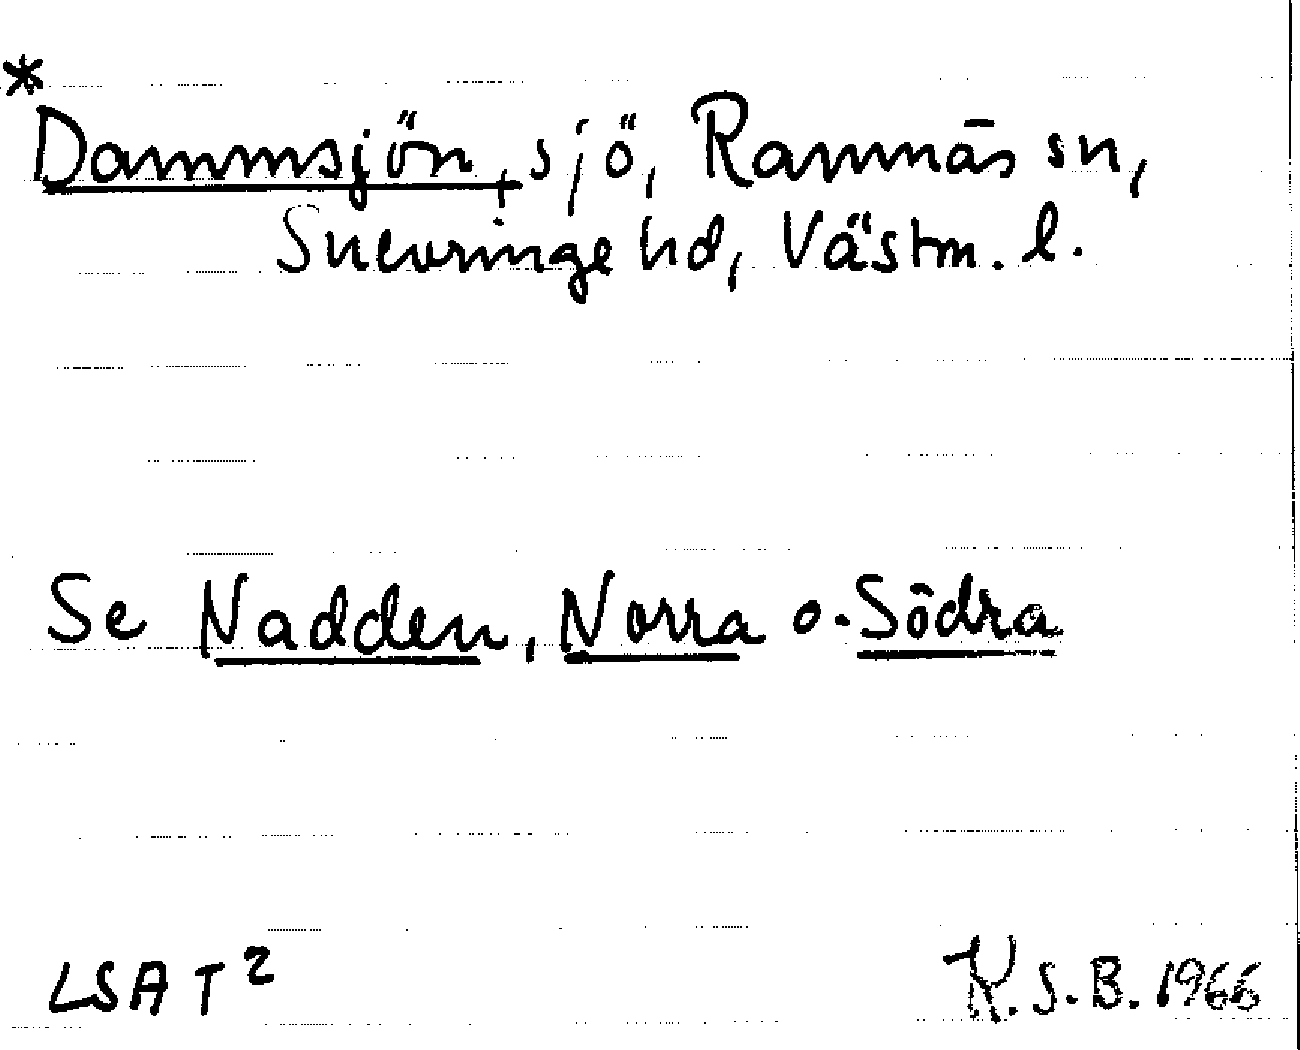 *
Dammsjön, sjö, Ramnäs sn,
Snevringe hd, Västm. l.
Se Nadden, Norra o. Södra
LSA T² K.S.B. 1966